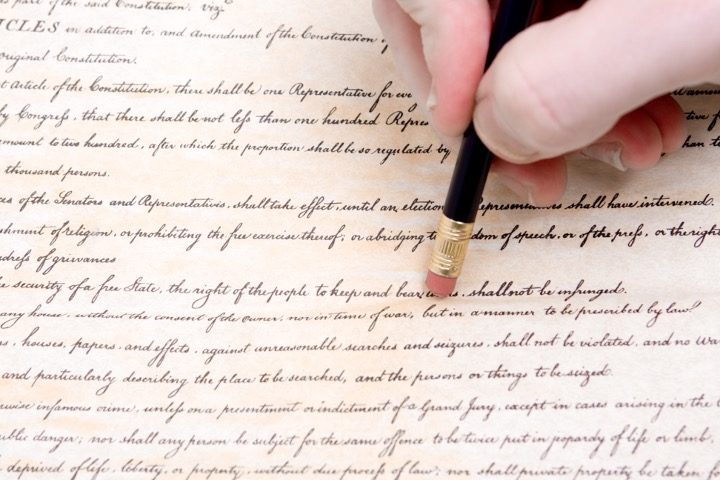 part of the said Constitution. viz.
ICLES in addition to, and amendment of the Constitution
original Constitution.
Article of the Constitution, there shall be one Representative for
by Congress, that there shall be not less than one hundred
amount to two hundred, after which the proportion shall be so regulated by
thousand persons.
of the Senators and Representatives, shall take effect, until an election Representatives shall have intervened.
of religion, or prohibiting the free exercise thereof; or abridging of speech, or of the press, or the right
of grievances
security of a free State, the right of the people to keep and bear, shall not be infringed.
any house, without the consent of the owner, nor in time of war, but in a manner to be prescribed by law.
houses, papers, and effects, against unreasonable searches and seizures, shall not be violated, and no
and particularly describing the place to be searched, and the persons or things to be seized.
infamous crime, unless on a presentment or indictment of a Grand Jury, except in cases arising in the
public danger; nor shall any person be subject for the same offence to be twice put in jeopardy of life or limb,
deprived of life, liberty, or property, without due process of law; nor shall private property be taken